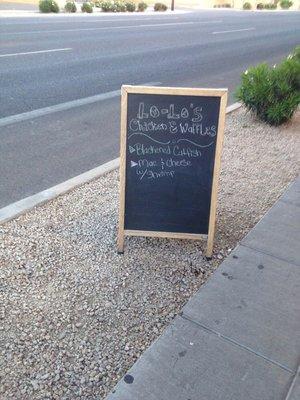 Lo-Lo's
Chicken & Waffles
Blackened Catfish
Mac & Cheese
w/ shrimp